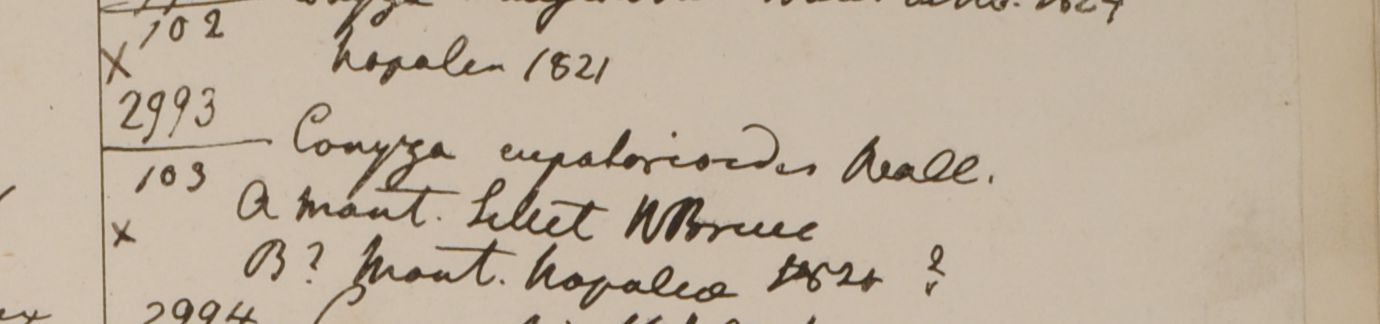 102 1824
X Napalea 1821
2993
Conyza eupatorioides Wall.
103
a mont. Sillet WBruce
X
B? Mont. Napalea 1821 ?
2994